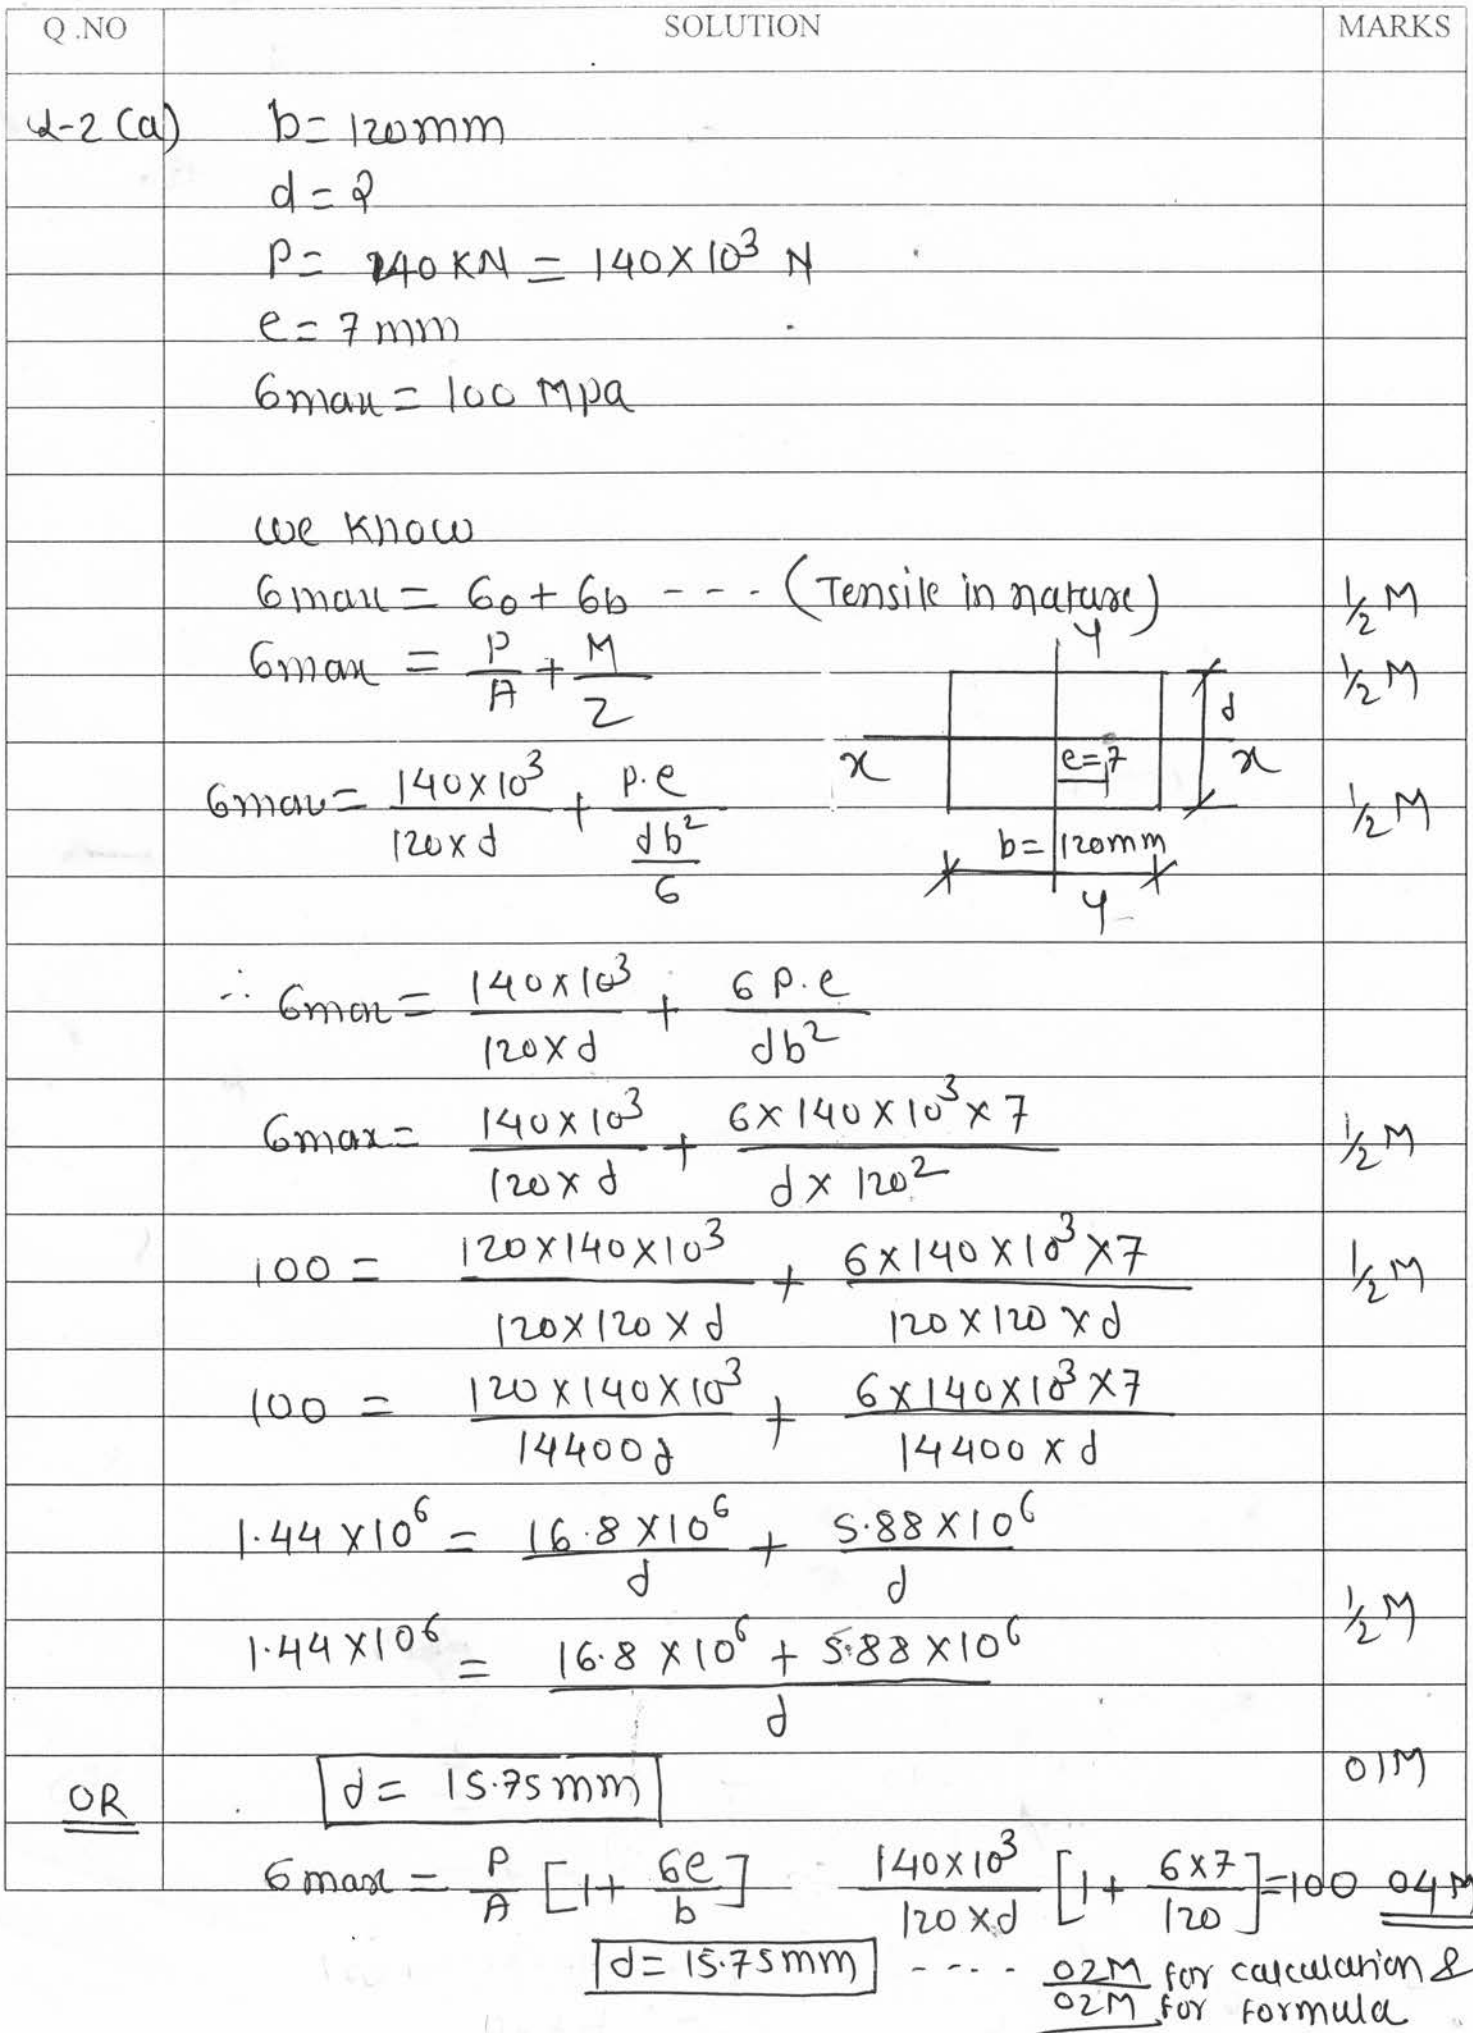 Q .NO SOLUTION MARKS
Q-2 (a) b = 120mm
d = ?
P = 140 KN = 140 × 10³ N
e = 7 mm
σmax = 100 Mpa
we know
σmax = σo + σb - - - - (Tensile in nature) ½ M
σmax = P/A + M/Z ½ M
Y
d
x x
e=7
b= 120mm
Y
σmax = 140×10³/120×d + P.e/(db²/6) ½ M
∴ σmax = 140×10³/120×d + 6 P.e/db²
σmax = 140×10³/120×d + 6×140×10³×7/d×120² ½ M
100 = 120×140×10³/120×120×d + 6×140×10³×7/120×120×d ½ M
100 = 120×140×10³/14400d + 6×140×10³×7/14400×d
1.44×10⁶ = 16.8×10⁶/d + 5.88×10⁶/d
½ M
1.44×10⁶ = 16.8×10⁶ + 5.88×10⁶/d
d = 15.75mm 01M
OR
σmax = P/A [1 + 6e/b] 140×10³/120×d [1 + 6×7/120] = 100 04M
d = 15.75mm - - - - 02M for calculation &
02M for formula